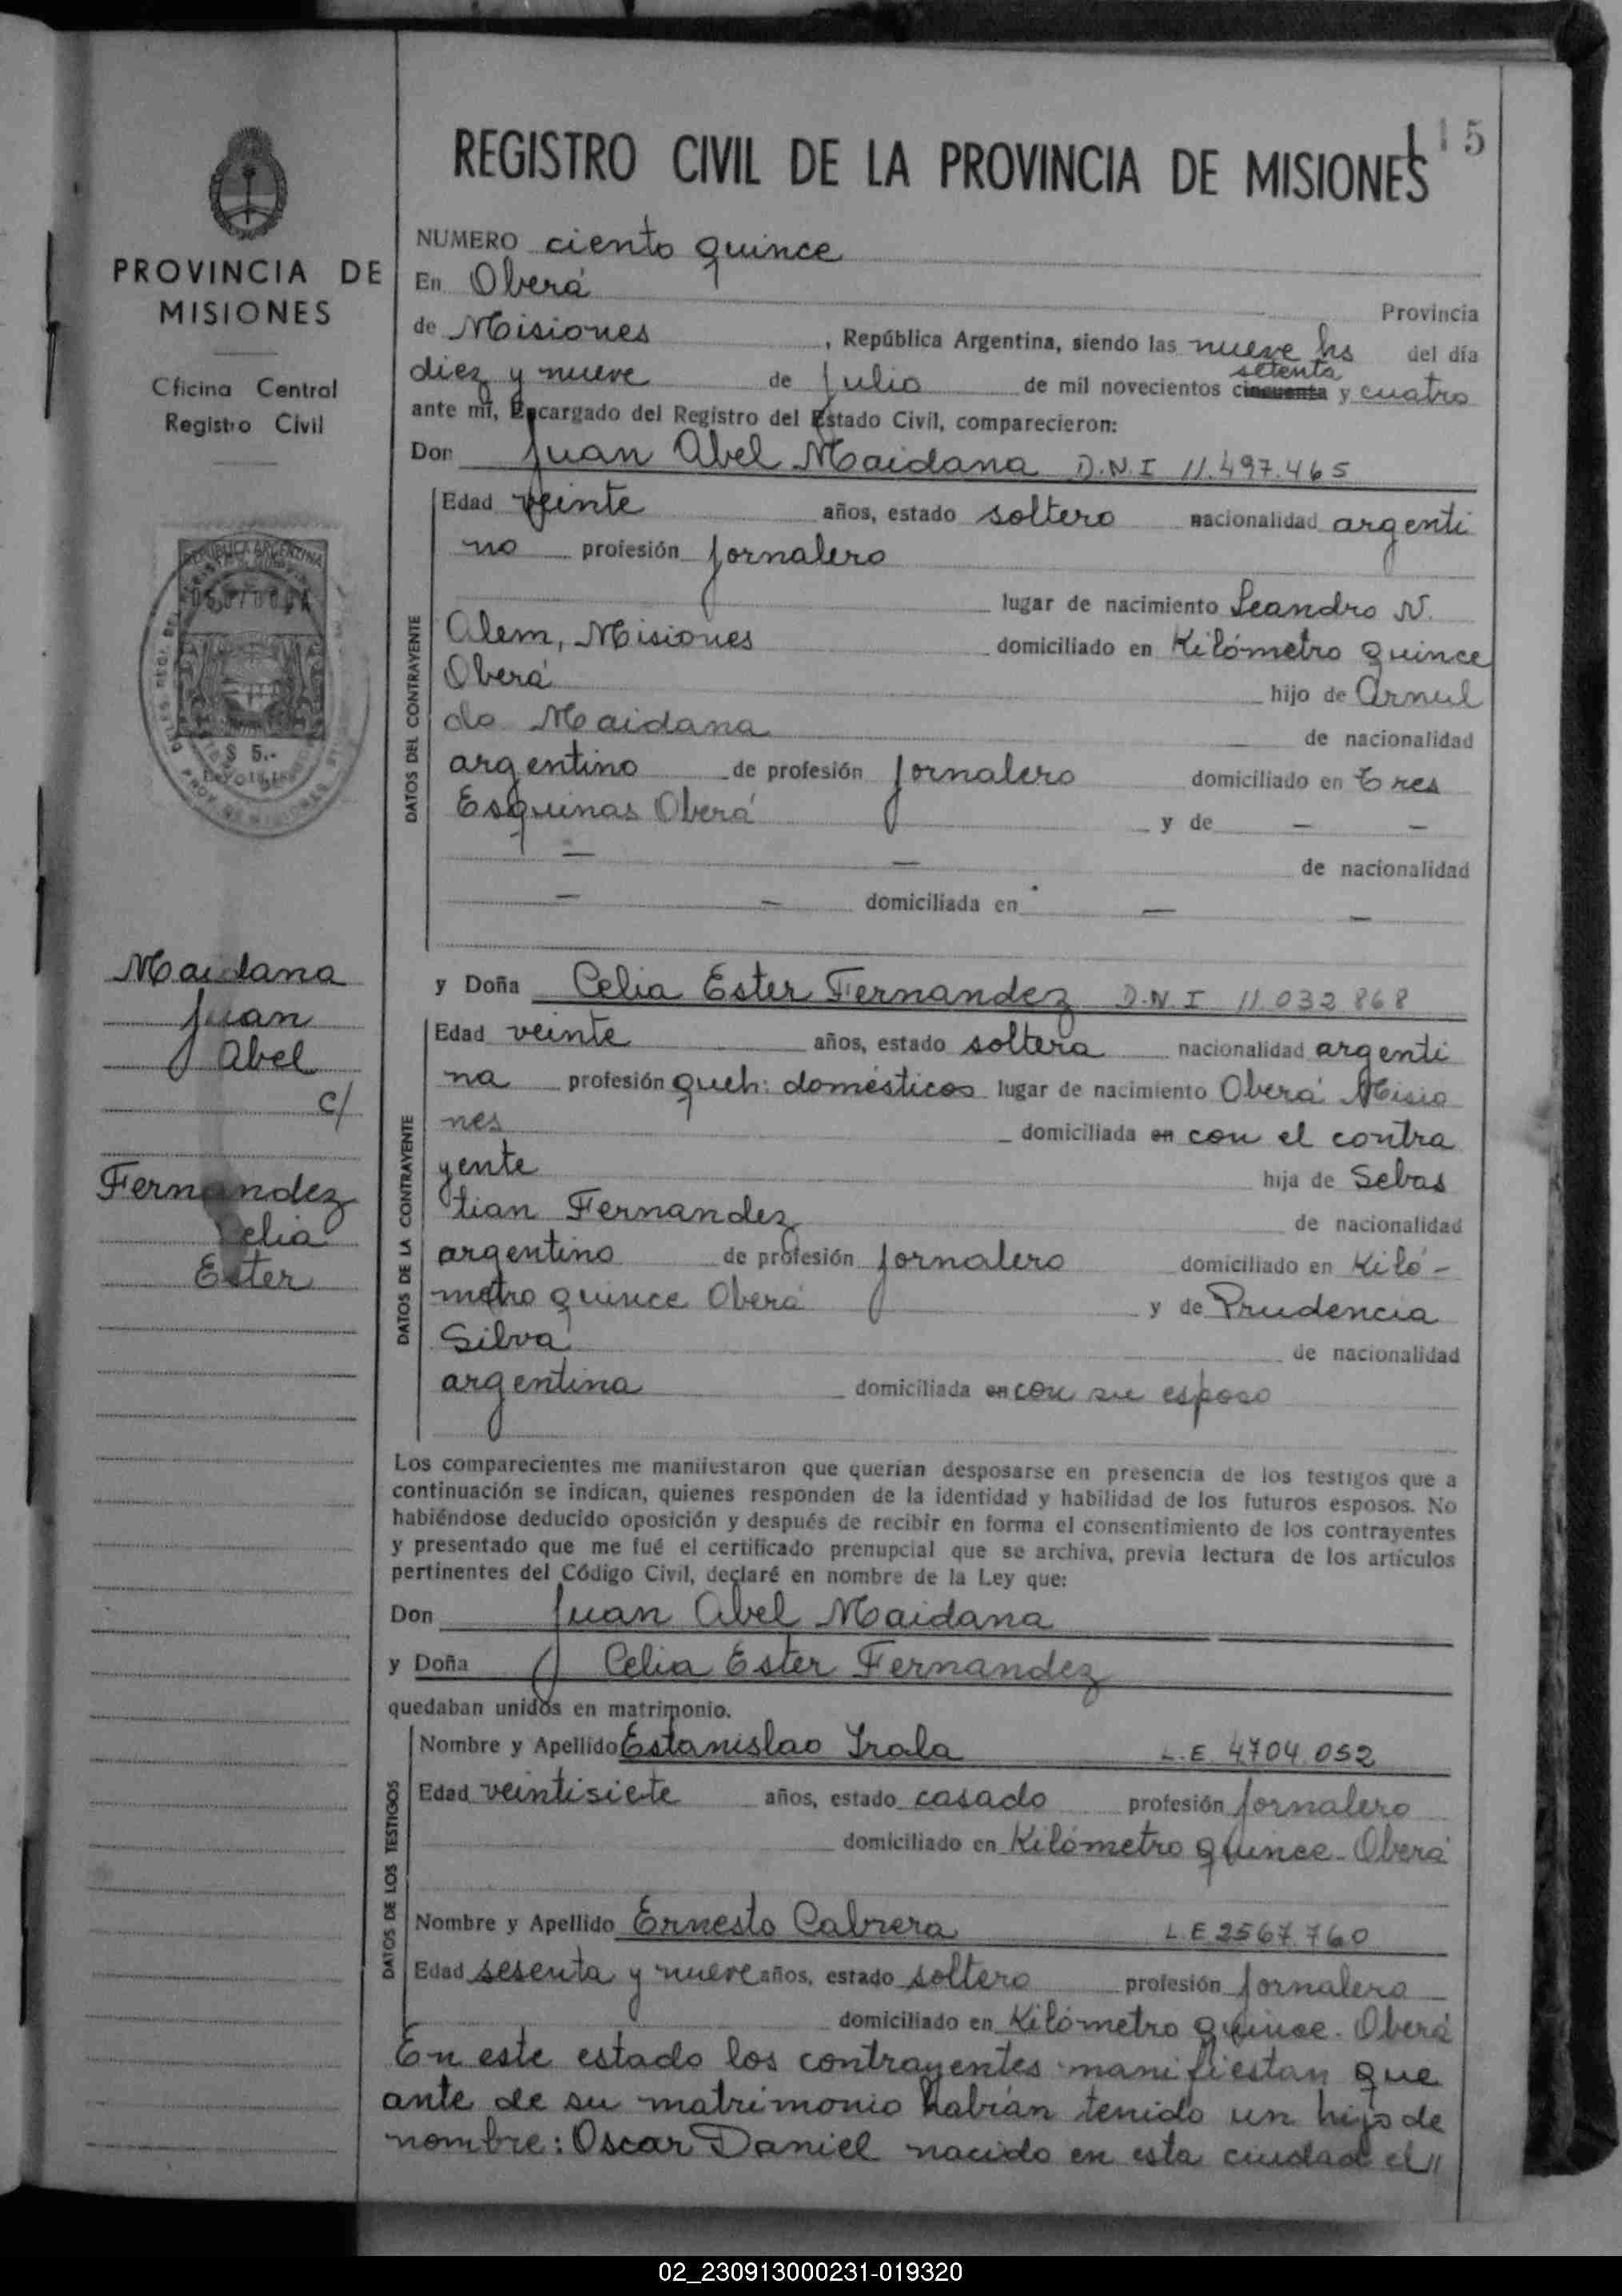 115
REGISTRO CIVIL DE LA PROVINCIA DE MISIONES
PROVINCIA DE
MISIONES
Oficina Central
Registro Civil
REPUBLICA ARGENTINA
$ 5.-
Maidana
Juan
Abel
c/
Fernandez
Celia
Ester
NUMERO ciento quince
En Oberá
Provincia
de Misiones , República Argentina, siendo las nueve hs del día
setenta
diez y nueve de Julio de mil novecientos cincuenta y cuatro
ante mí, Encargado del Registro del Estado Civil, comparecieron:
Don Juan Abel Maidana D.N.I 11.497.465
DATOS DEL CONTRAYENTE
Edad veinte años, estado soltero nacionalidad argenti
no profesión jornalero
lugar de nacimiento Leandro N.
Alem, Misiones domiciliado en Kilómetro quince
Oberá hijo de Arnul
do Maidana de nacionalidad
argentino de profesión jornalero domiciliado en Tres
Esquinas Oberá y de — —
— — de nacionalidad
— — domiciliada en — —
y Doña Celia Ester Fernandez D.N.I 11.032.868
DATOS DE LA CONTRAYENTE
Edad veinte años, estado soltera nacionalidad argenti
na profesión queh: domésticos lugar de nacimiento Oberá Misio
nes domiciliada en con el contra
yente hija de Sebas
tian Fernandez de nacionalidad
argentino de profesión jornalero domiciliado en Kiló-
metro quince Oberá y de Prudencia
Silva de nacionalidad
argentina domiciliada en con su esposo
Los comparecientes me manifestaron que querían desposarse en presencia de los testigos que a
continuación se indican, quienes responden de la identidad y habilidad de los futuros esposos. No
habiéndose deducido oposición y después de recibir en forma el consentimiento de los contrayentes
y presentado que me fué el certificado prenupcial que se archiva, previa lectura de los artículos
pertinentes del Código Civil, declaré en nombre de la Ley que:
Don Juan Abel Maidana
y Doña Celia Ester Fernandez
quedaban unidos en matrimonio.
DATOS DE LOS TESTIGOS
Nombre y Apellido Estanislao Irala L.E. 4704.052
Edad veintisiete años, estado casado profesión jornalero
domiciliado en Kilómetro quince - Oberá
Nombre y Apellido Ernesto Cabrera L.E 2567.760
Edad sesenta y nueve años, estado soltero profesión jornalero
domiciliado en Kilómetro quince - Oberá
En este estado los contrayentes manifiestan que
ante de su matrimonio habían tenido un hijo de
nombre: Oscar Daniel nacido en esta ciudad el //
02_230913000231-019320